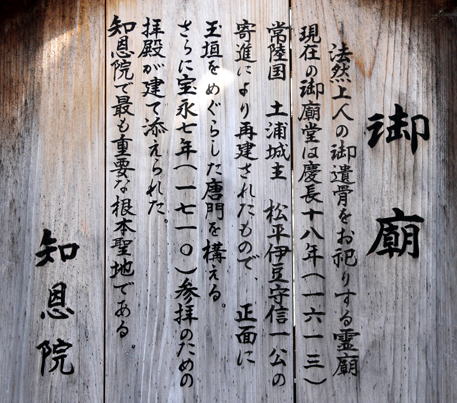 御廟
法然上人の御遺骨をお祀りする霊廟
現在の御廟堂は慶長十八年(一六一三)
常陸国 土浦城主 松平伊豆守信一公の
寄進により再建されたもので、正面に
玉垣をめぐらした唐門を構える。
さらに宝永七年(一七一〇)参拝のための
拝殿が建て添えられた。
知恩院で最も重要な根本聖地である。
知恩院